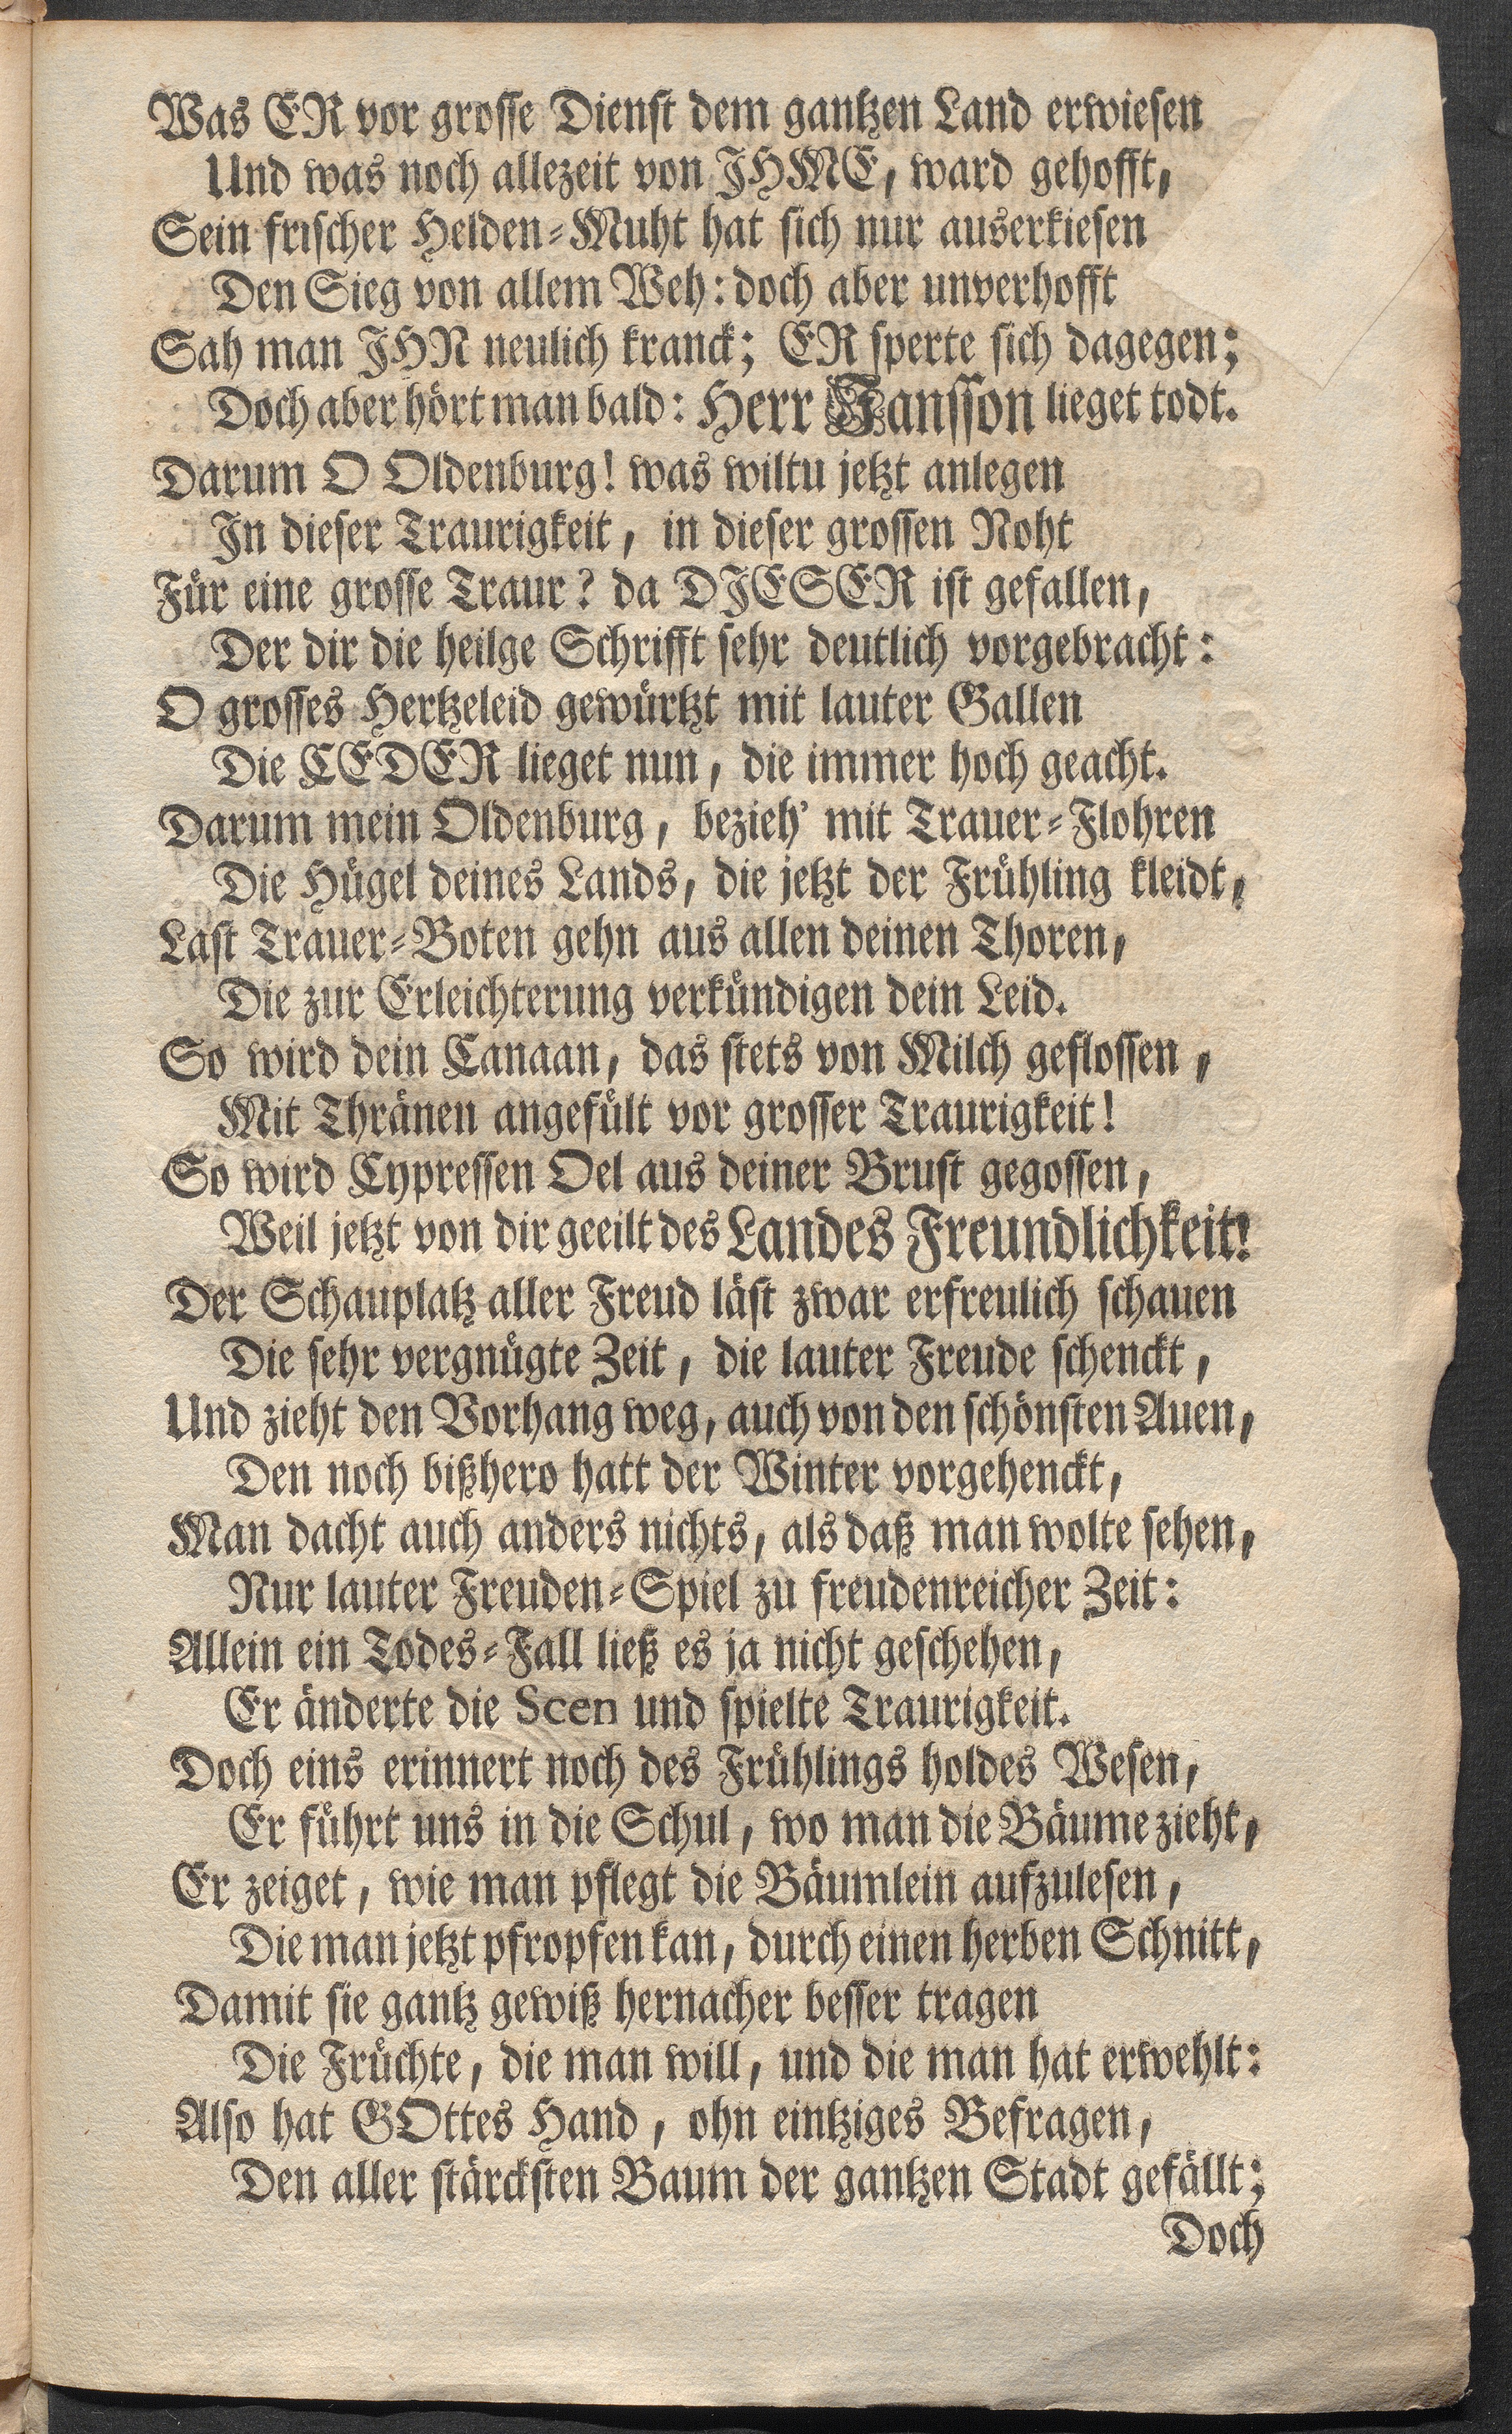 Was ER vor grosse Dienst dem gantzen Land erwiesen
Und was noch allezeit von JHME, ward gehofft,
Sein frischer Helden-Muht hat sich nur auserkiesen
Den Sieg von allem Weh: doch aber unverhofft
Sah man JHN neulich kranck; ER sperte sich dagegen;
Doch aber hört man bald: Herr Jansson lieget todt.
Darum O Oldenburg! was wiltu jetzt anlegen
In dieser Traurigkeit, in dieser grossen Noht
Für eine grosse Traur? da DJESER ist gefallen,
Der dir die heilge Schrifft sehr deutlich vorgebracht:
O grosses Hertzeleid gewürtzt mit lauter Gallen
Die CEDER lieget nun, die immer hoch geacht.
Darum mein Oldenburg, bezieh' mit Trauer-Flohren
Die Hügel deines Lands, die jetzt der Frühling kleidt,
Last Trauer-Boten gehn aus allen deinen Thoren,
Die zur Erleichterung verkündigen dein Leid.
So wird dein Canaan, das stets von Milch geflossen,
Mit Thränen angefült vor grosser Traurigkeit!
So wird Cypressen Oel aus deiner Brust gegossen,
Weil jetzt von dir geeilt des Landes Freundlichkeit!
Der Schauplatz aller Freud läst zwar erfreulich schauen
Die sehr vergnügte Zeit, die lauter Freude schenckt,
Und zieht den Vorhang weg, auch von den schönsten Auen,
Den noch bißhero hatt der Winter vorgehenckt,
Man dacht auch anders nichts, als daß man wolte sehen,
Nur lauter Freuden-Spiel zu freudenreicher Zeit:
Allein ein Todes-Fall ließ es ja nicht geschehen,
Er änderte die Scen und spielte Traurigkeit.
Doch eins erinnert noch des Frühlings holdes Wesen,
Er führt uns in die Schul, wo man die Bäume zieht,
Er zeiget, wie man pflegt die Bäumlein aufzulesen,
Die man jetzt pfropfen kan, durch einen herben Schnitt,
Damit sie gantz gewiß hernacher besser tragen
Die Früchte, die man will, und die man hat erwehlt:
Also hat GOttes Hand, ohn eintziges Befragen,
Den aller stärcksten Baum der gantzen Stadt gefällt;
Doch